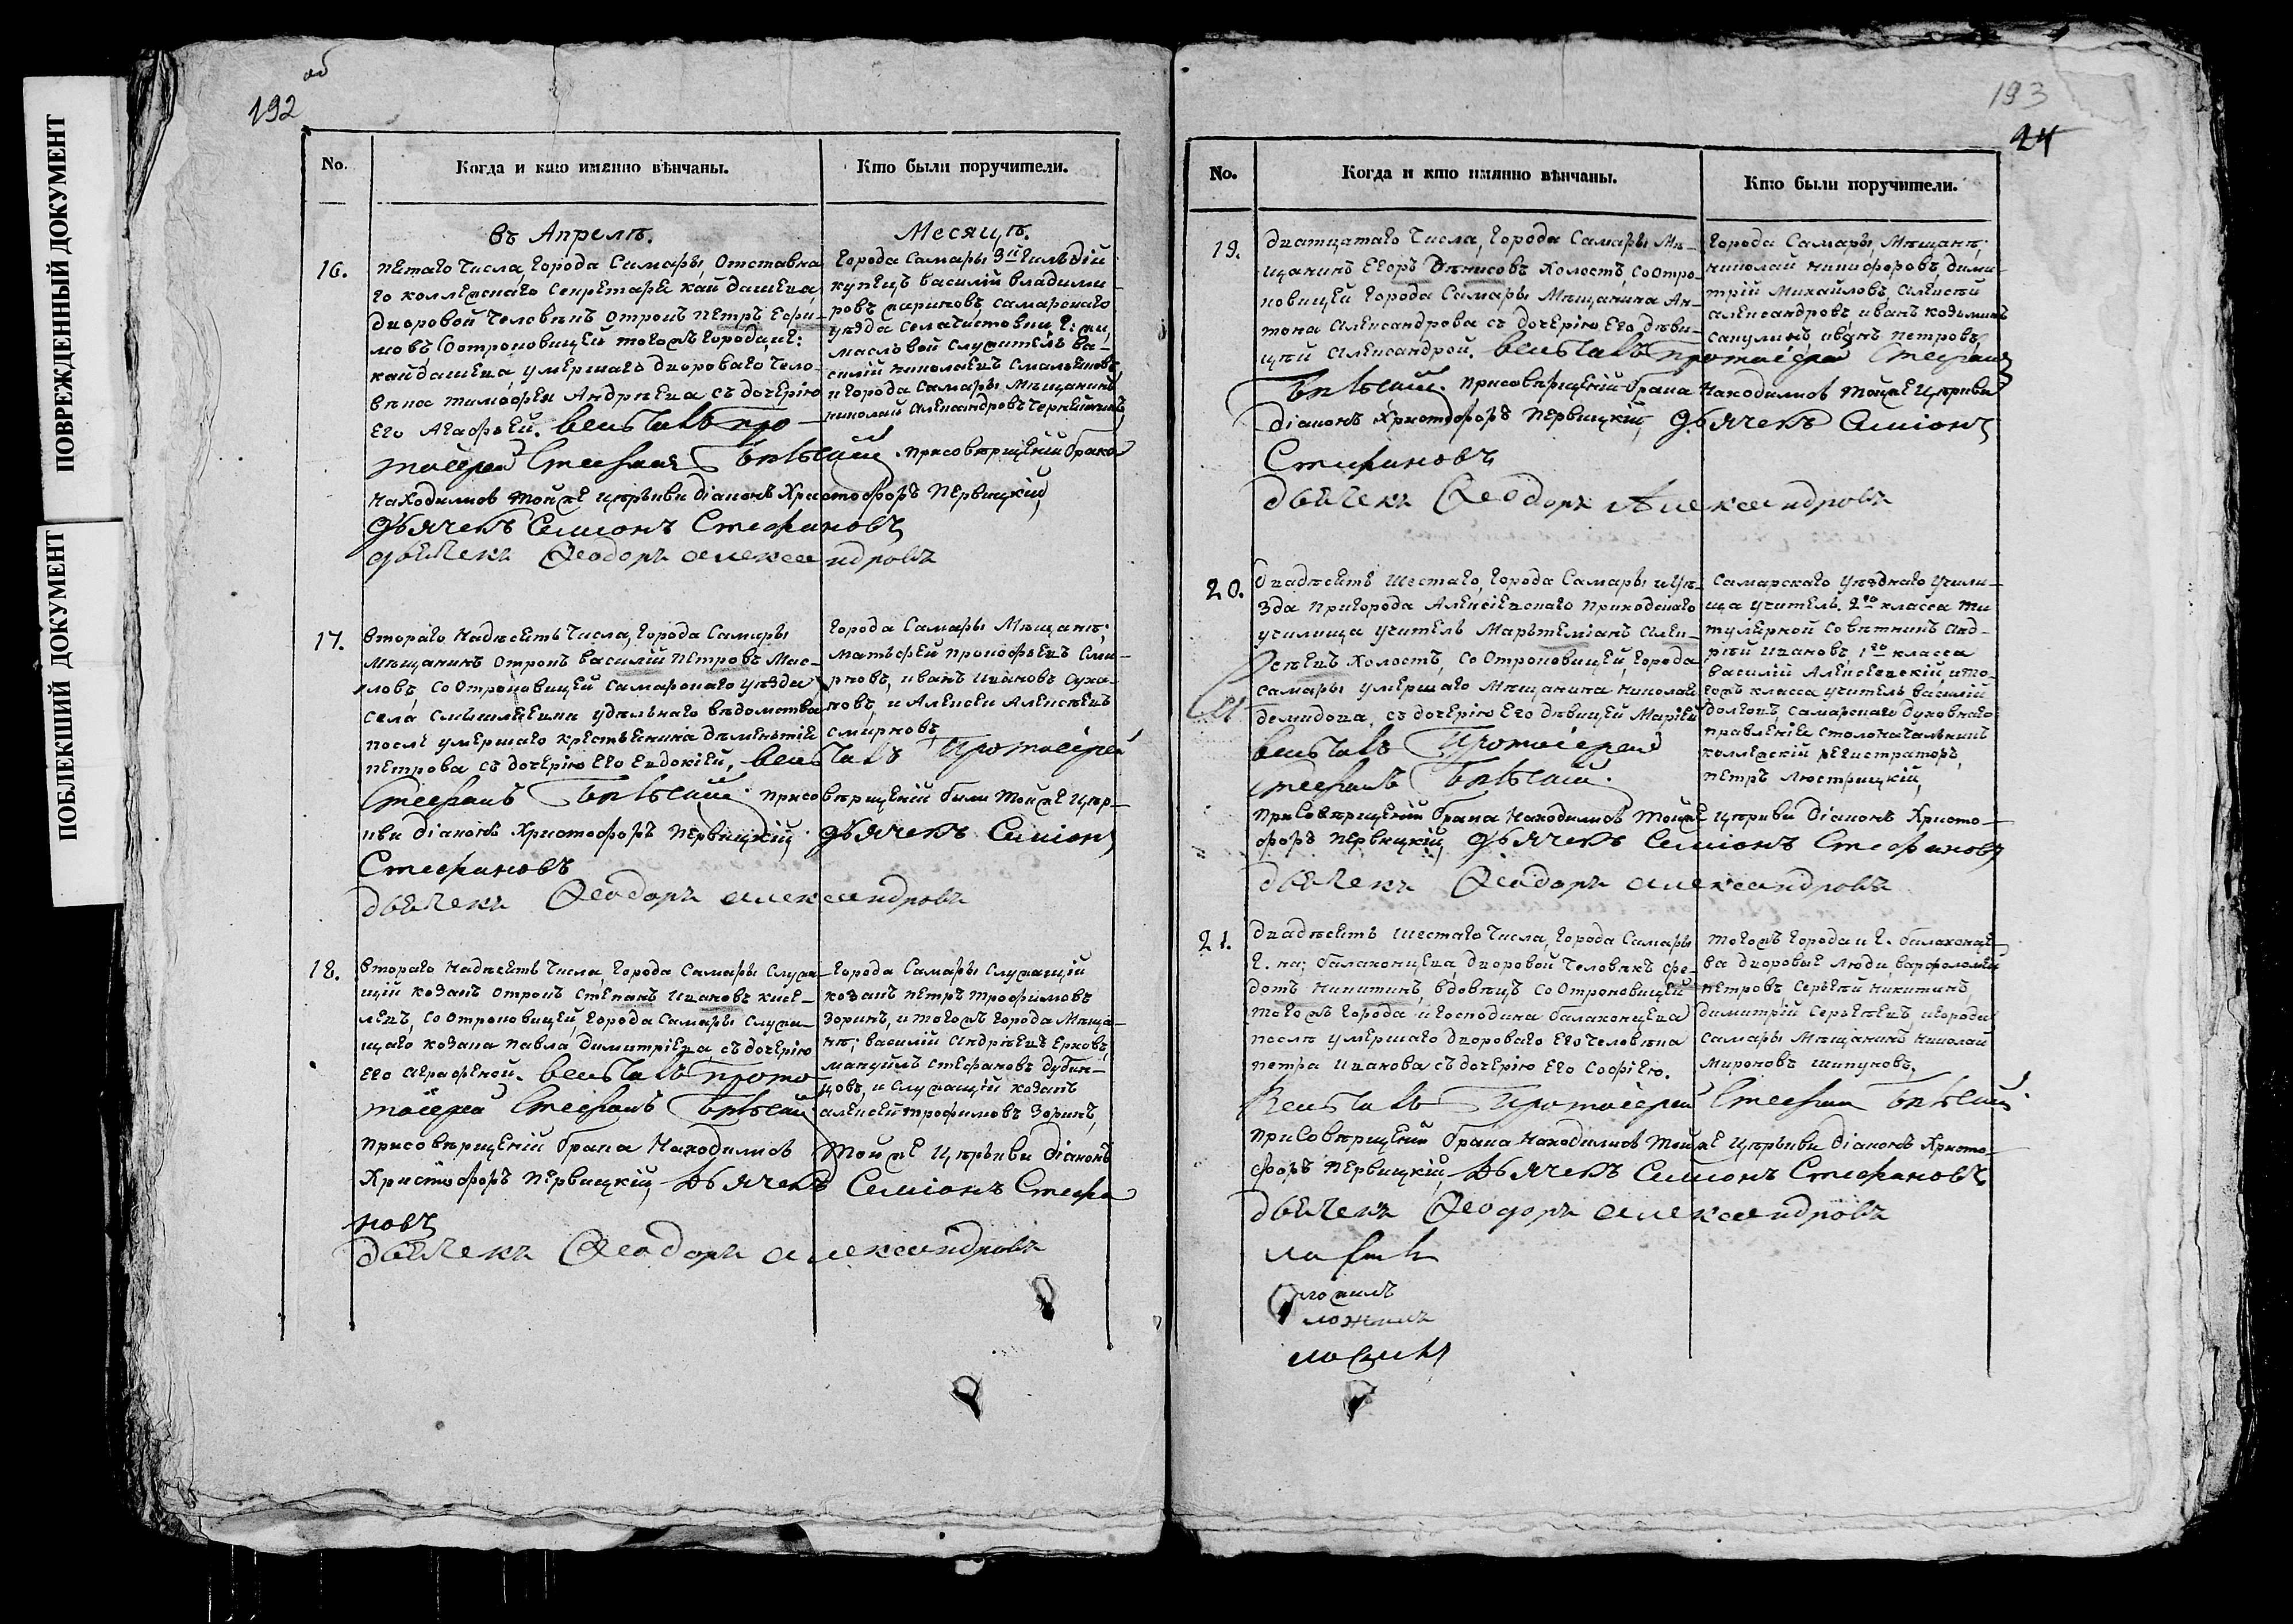 ПОВРЕЖДЕННЫЙ ДОКУМЕНТ
ПОБЛЕКШИЙ ДОКУМЕНТ
об
192
No.
Когда и кто имянно вѣнчаны.
Кто были поручители.
въ Апрелѣ.
Месяцѣ.
16.
пѣтаго числа, города Самары, Отставна
го коллежскаго секретаря Кайдашева,
дворовой человѣкъ отрокъ Петръ Ефи-
мовъ со отроковицей тогожъ города, г:
Кайдашева, умершаго двороваго чело-
вѣка Тимофея Андрѣева съ дочерію
его Агафьей. Венчалъ про-
тоіерей Стефанъ Присовѣршеніи брака
находились тойже церькви діаконъ Христофоръ Первицкій,
дьячекъ Семіонъ Стефановъ
дьячекъ Ѳеодоръ Александровъ
города Самары 3й гильдіи
купецъ Василій Владими-
ровъ Самарскаго
уѣзда села
Ва-
силій Николаевъ
и города Самары Мѣщанинъ
Николай Александровъ
17.
втораго надесять числа, города Самары
мѣщанинъ отрокъ Василій Петровъ Мас-
ловъ, со отроковицей Самарскаго уѣзда
села Смышляевки удѣльнаго вѣдомства
послѣ умершаго крестьянина Дѣментія
Петрова съ дочерію его Евдокіей, венчалъ Протоіерей
Стефанъ присовѣршеніи были тойже цер-
кви діаконъ Христофоръ Первицкій, дьячекъ Семіонъ
Стефановъ
дьячекъ Ѳеодоръ Александровъ
города Самары Мѣщанѣ;
Матьфей Прокофьевъ Сми-
рновъ, Иванъ Ивановъ Суха-
ковъ, и Алексѣй Алексѣевъ
Смирновъ
18.
втораго надесять числа, города Самары служа-
щій козакъ отрокъ Степанъ Ивановъ Кисе-
левъ, со отроковицей, города Самары служа-
щаго козака Павла Димитріева, съ дочерію
его Аграфеной. венчалъ прото-
іерей Стефанъ
присовѣршеніи брака находились тойже церькви діаконъ
Христофоръ Первицкій, дьячекъ Семіонъ Стефа
новъ
дьячекъ Ѳеодоръ Александровъ
города Самары служащій
козакъ Петръ Трофимовъ
Зоринъ, и тогожъ города Мѣща-
нѣ; Василій Андрѣевъ Ерковъ,
Мануйлъ Стефановъ Дубин-
цовъ, и служащій козакъ
Алексѣй Трофимовъ Зоринъ,
193
24
No.
Когда и кто имянно вѣнчаны.
Кто были поручители.
19.
дватцатаго числа, города Самары Мѣ-
щанинъ Егоръ Дѣнисовъ холостъ, со отро-
ковицей города Самары Мѣщанина Ан-
тона Александрова съ дочерію его дѣви-
цей Александрой. венчалъ протоіерей Стефанъ
присовѣршеніи брака находились тойже церкви
діаконъ Христофоръ Первицкій, дьячекъ Семіонъ
Стефановъ
дьячекъ Ѳеодоръ Александровъ
города Самары, Мѣщанѣ;
Николай Никифоровъ, Дими-
трій Михайловъ, Алексѣй
Александровъ, Иванъ Козьминъ
Иванъ Петровъ,
20.
двадѣсять шестаго, города Самары и уѣ-
зда пригорода Алексіевскаго приходскаго
училища учитель Марьтеміанъ Алек-
сѣевъ холостъ, со отроковицей, города
Самары умершаго Мѣщанина Николая
Демидова, съ дочерію его дѣвицей Маріей
венчалъ Протоіерей
Стефанъ
присовѣршеніи брака находились тойже церкви діаконъ Христо-
форъ Первицкій, дьячекъ Семіонъ Стефановъ
дьячекъ Ѳеодоръ Александровъ
Самарскаго уѣзднаго учили-
ща учитель 2го класса ти
тулярной совѣтникъ Анд-
рей Ивановъ, 1го класса
Василій Алексѣевскій, и то-
гожъ класса учитель Василій
Долговъ, Самарскаго духовнаго
правленія столоначальникъ
коллежскій регистраторъ,
Петръ Люстрицкій,
21.
двадѣсять шестаго числа, города Самары
г. на; Балаконцева, дворовой человѣкъ Фе-
дотъ Никитинъ, вдовецъ со отроковицей
тогожъ города и господина Балаконцева
послѣ умершаго двороваго его человѣка
Петра Иванова съ дочерію его Софіею.
Венчалъ Протоіерей Стефанъ
присовѣршеніи брака находились тойже церькви діаконъ Христо-
форъ Первицкій, дьячекъ Семіонъ Стефановъ
дьячекъ Ѳеодоръ Александровъ
тогожъ города и г. Балаконце-
ва дворовые люди, Варфоломей
Петровъ Сергѣй Никитинъ,
Димитрій Сергѣевъ, и города
Самары Мѣщанинъ Николай
Мироновъ Шипуновъ,